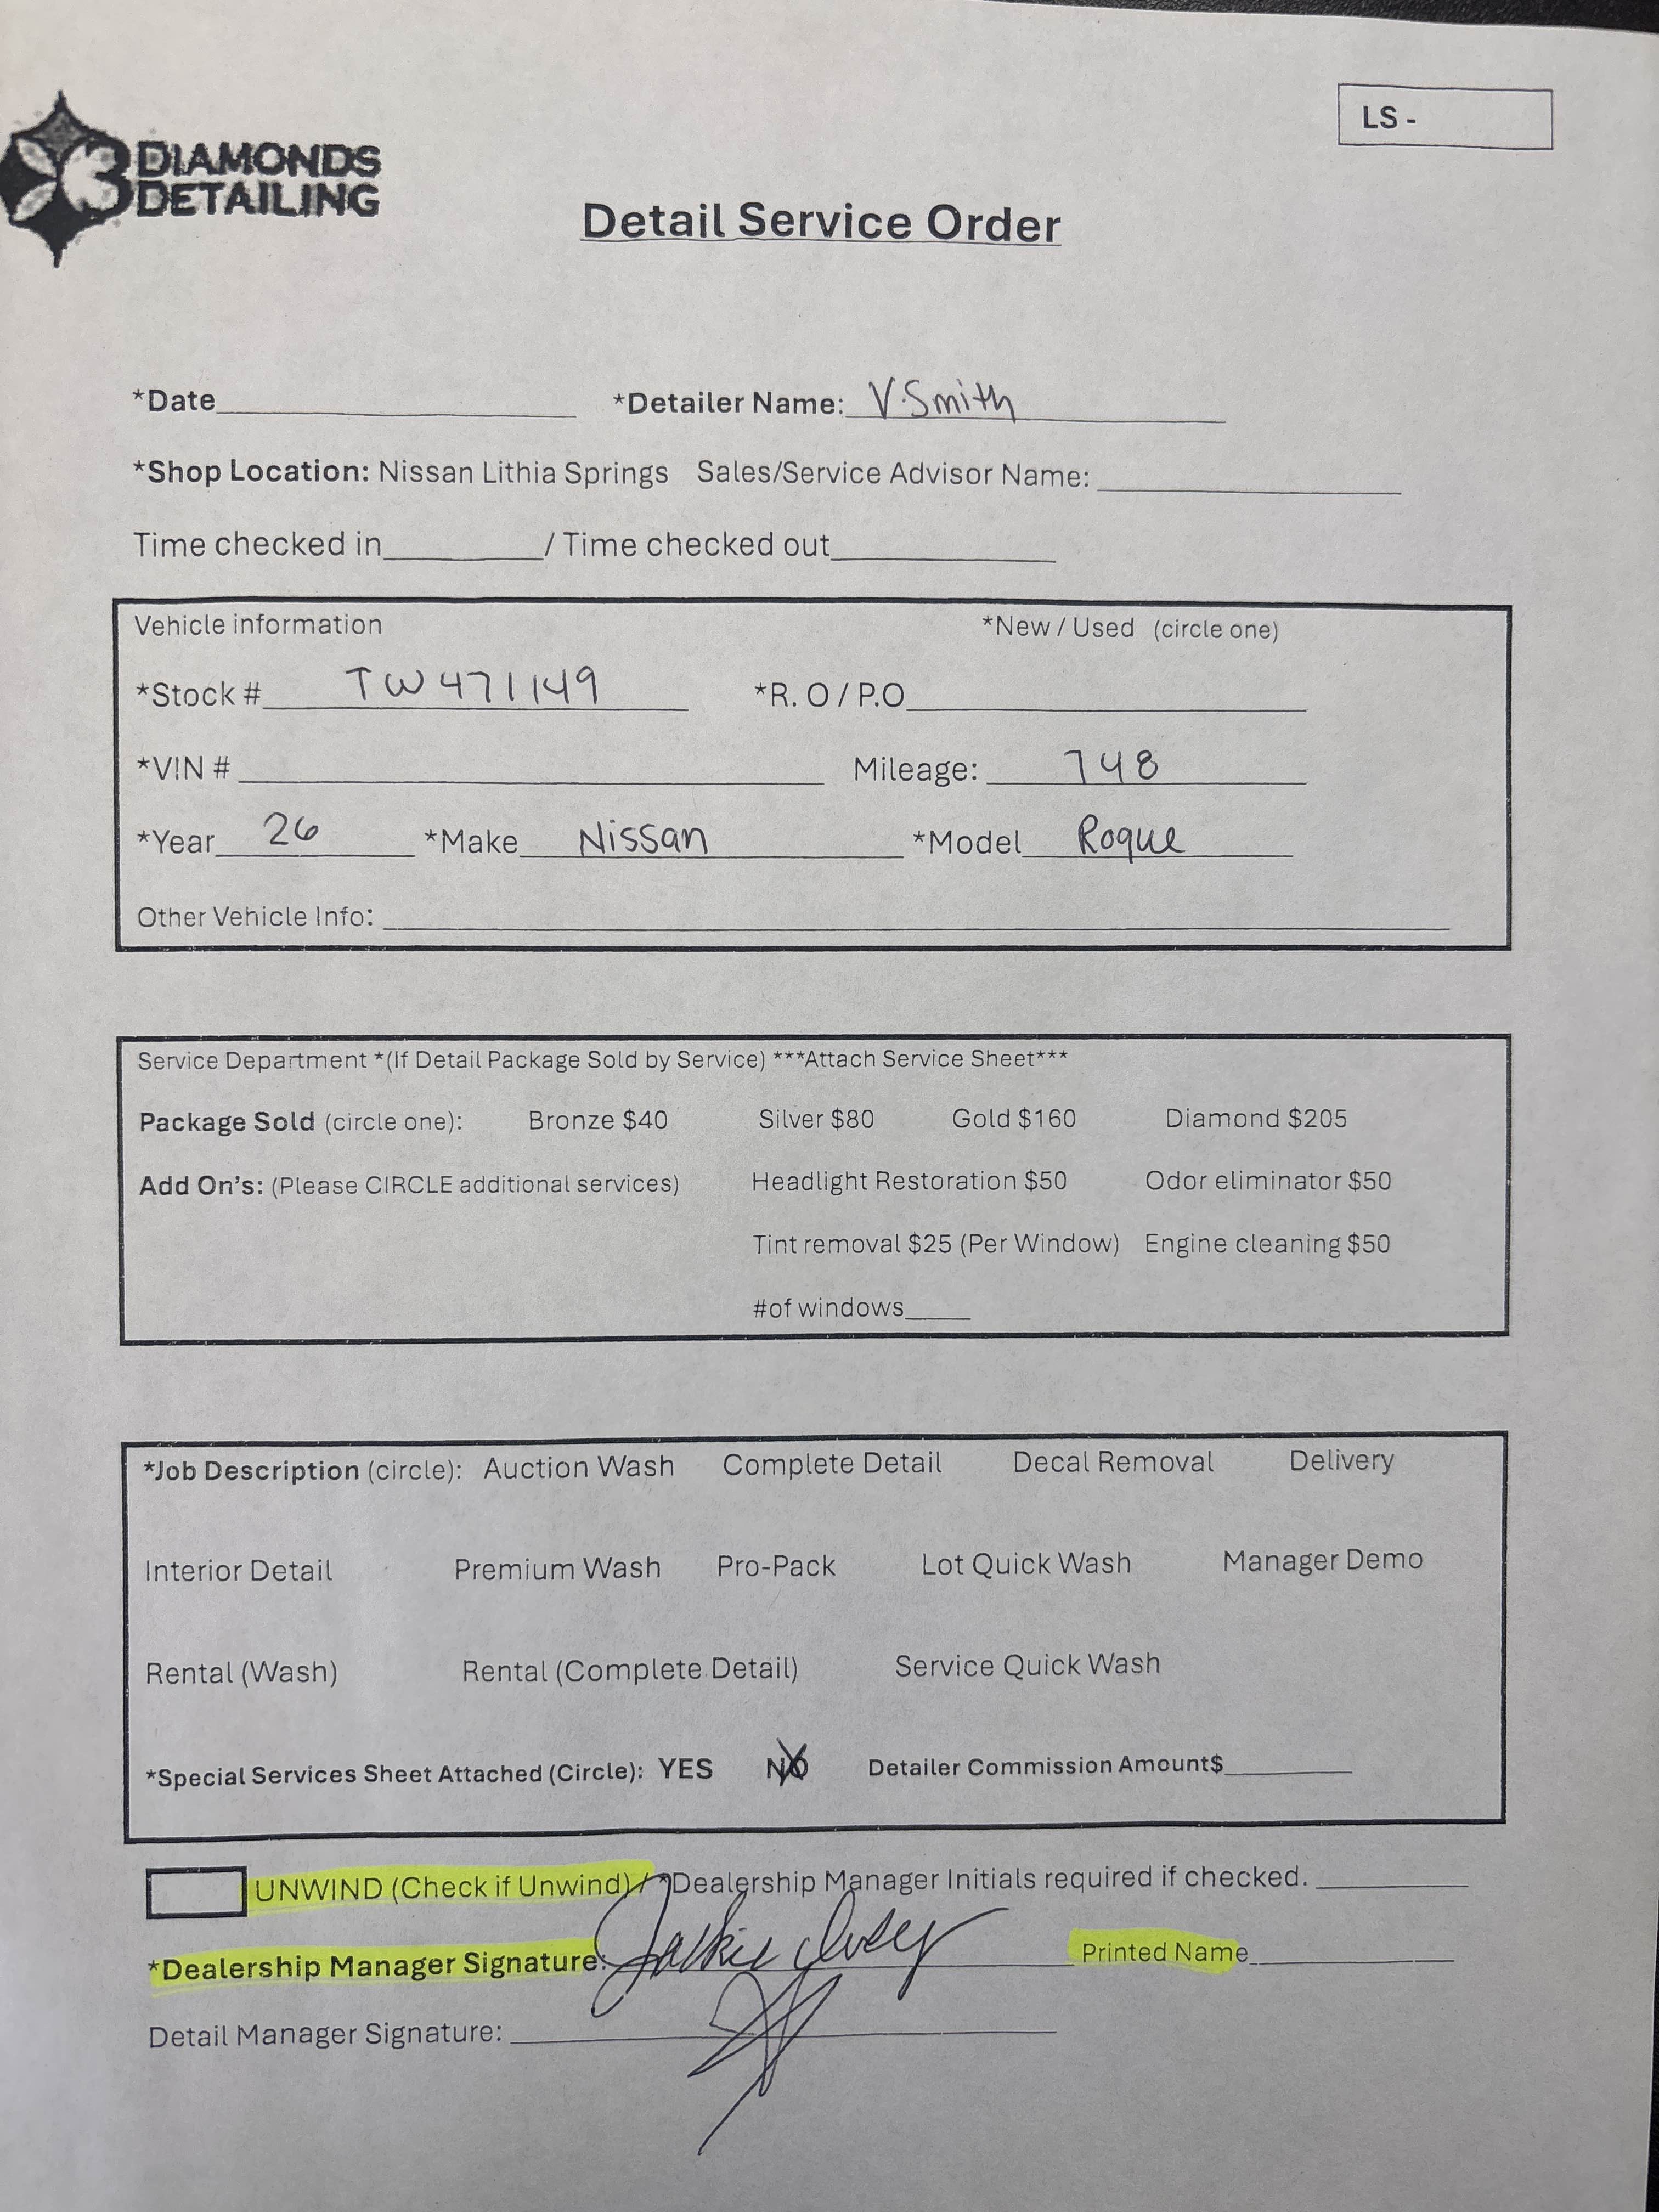 LS -
3 DIAMONDS
DETAILING
Detail Service Order
*Date__________ *Detailer Name: V. Smith
*Shop Location: Nissan Lithia Springs Sales/Service Advisor Name: __________
Time checked in__________/ Time checked out__________
Vehicle information *New / Used (circle one)
*Stock # TW471149 *R. O / P.O__________
*VIN # __________ Mileage: 748
*Year 26 *Make Nissan *Model Rogue
Other Vehicle Info: __________
Service Department *(If Detail Package Sold by Service) ***Attach Service Sheet***
Package Sold (circle one): Bronze $40 Silver $80 Gold $160 Diamond $205
Add On's: (Please CIRCLE additional services) Headlight Restoration $50 Odor eliminator $50
Tint removal $25 (Per Window) Engine cleaning $50
#of windows_____
*Job Description (circle): Auction Wash Complete Detail Decal Removal Delivery
Interior Detail Premium Wash Pro-Pack Lot Quick Wash Manager Demo
Rental (Wash) Rental (Complete Detail) Service Quick Wash
*Special Services Sheet Attached (Circle): YES NO Detailer Commission Amount$__________
UNWIND (Check if Unwind) / *Dealership Manager Initials required if checked. __________
*Dealership Manager Signature: Printed Name__________
Detail Manager Signature: __________